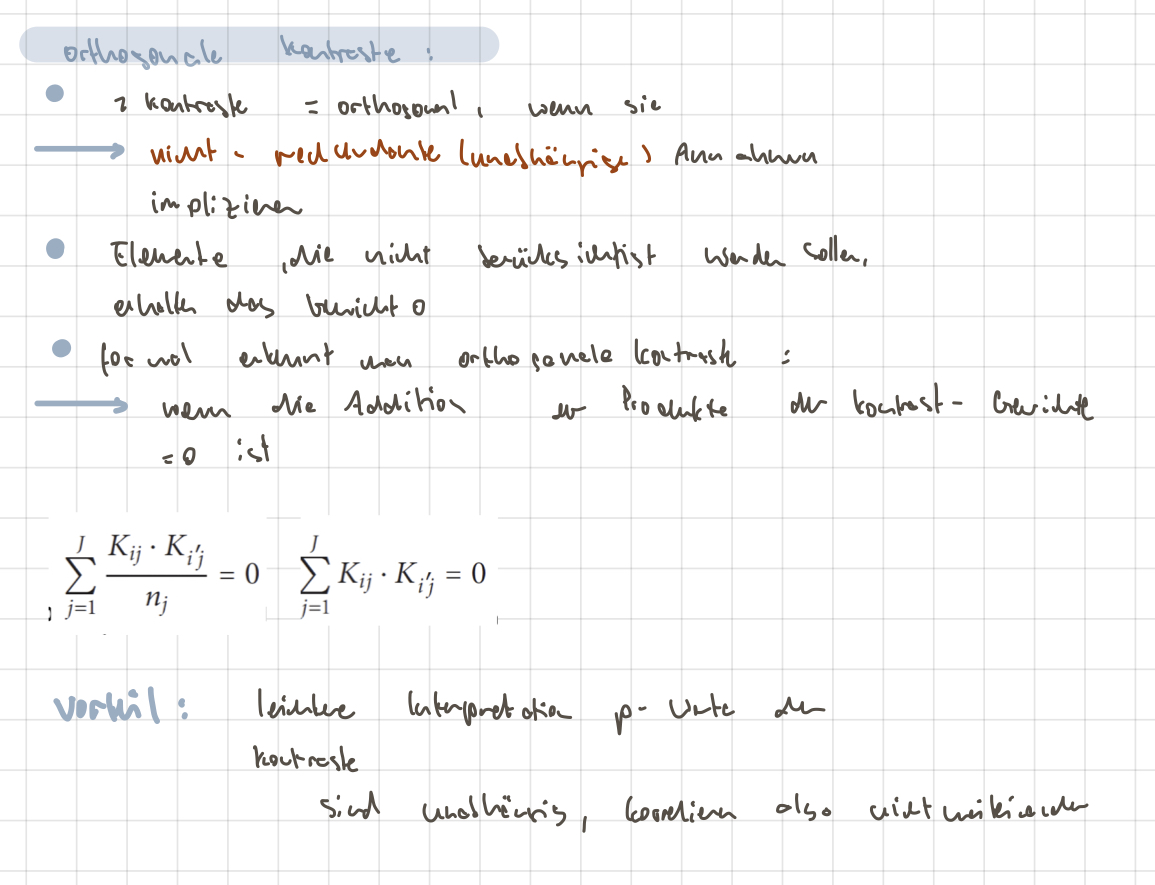 orthogonale Kontraste :
2 Kontraste = orthogonal, wenn sie
nicht - redundante (unabhängige) Annahmen
implizieren
Elemente, die nicht berücksichtigt werden sollen,
erhalten das Gewicht 0
formal erkennt man orthogonale Kontraste :
wenn die Addition der Produkte der Kontrast-Gewichte
=0 ist
\sum_{j=1}^{J} \frac{K_{ij} \cdot K_{i'j}}{n_j} = 0   \sum_{j=1}^{J} K_{ij} \cdot K_{i'j} = 0
Vorteil : leichtere Interpretation p-Werte der
Kontraste
sind unabhängig, korrelieren also nicht miteinander